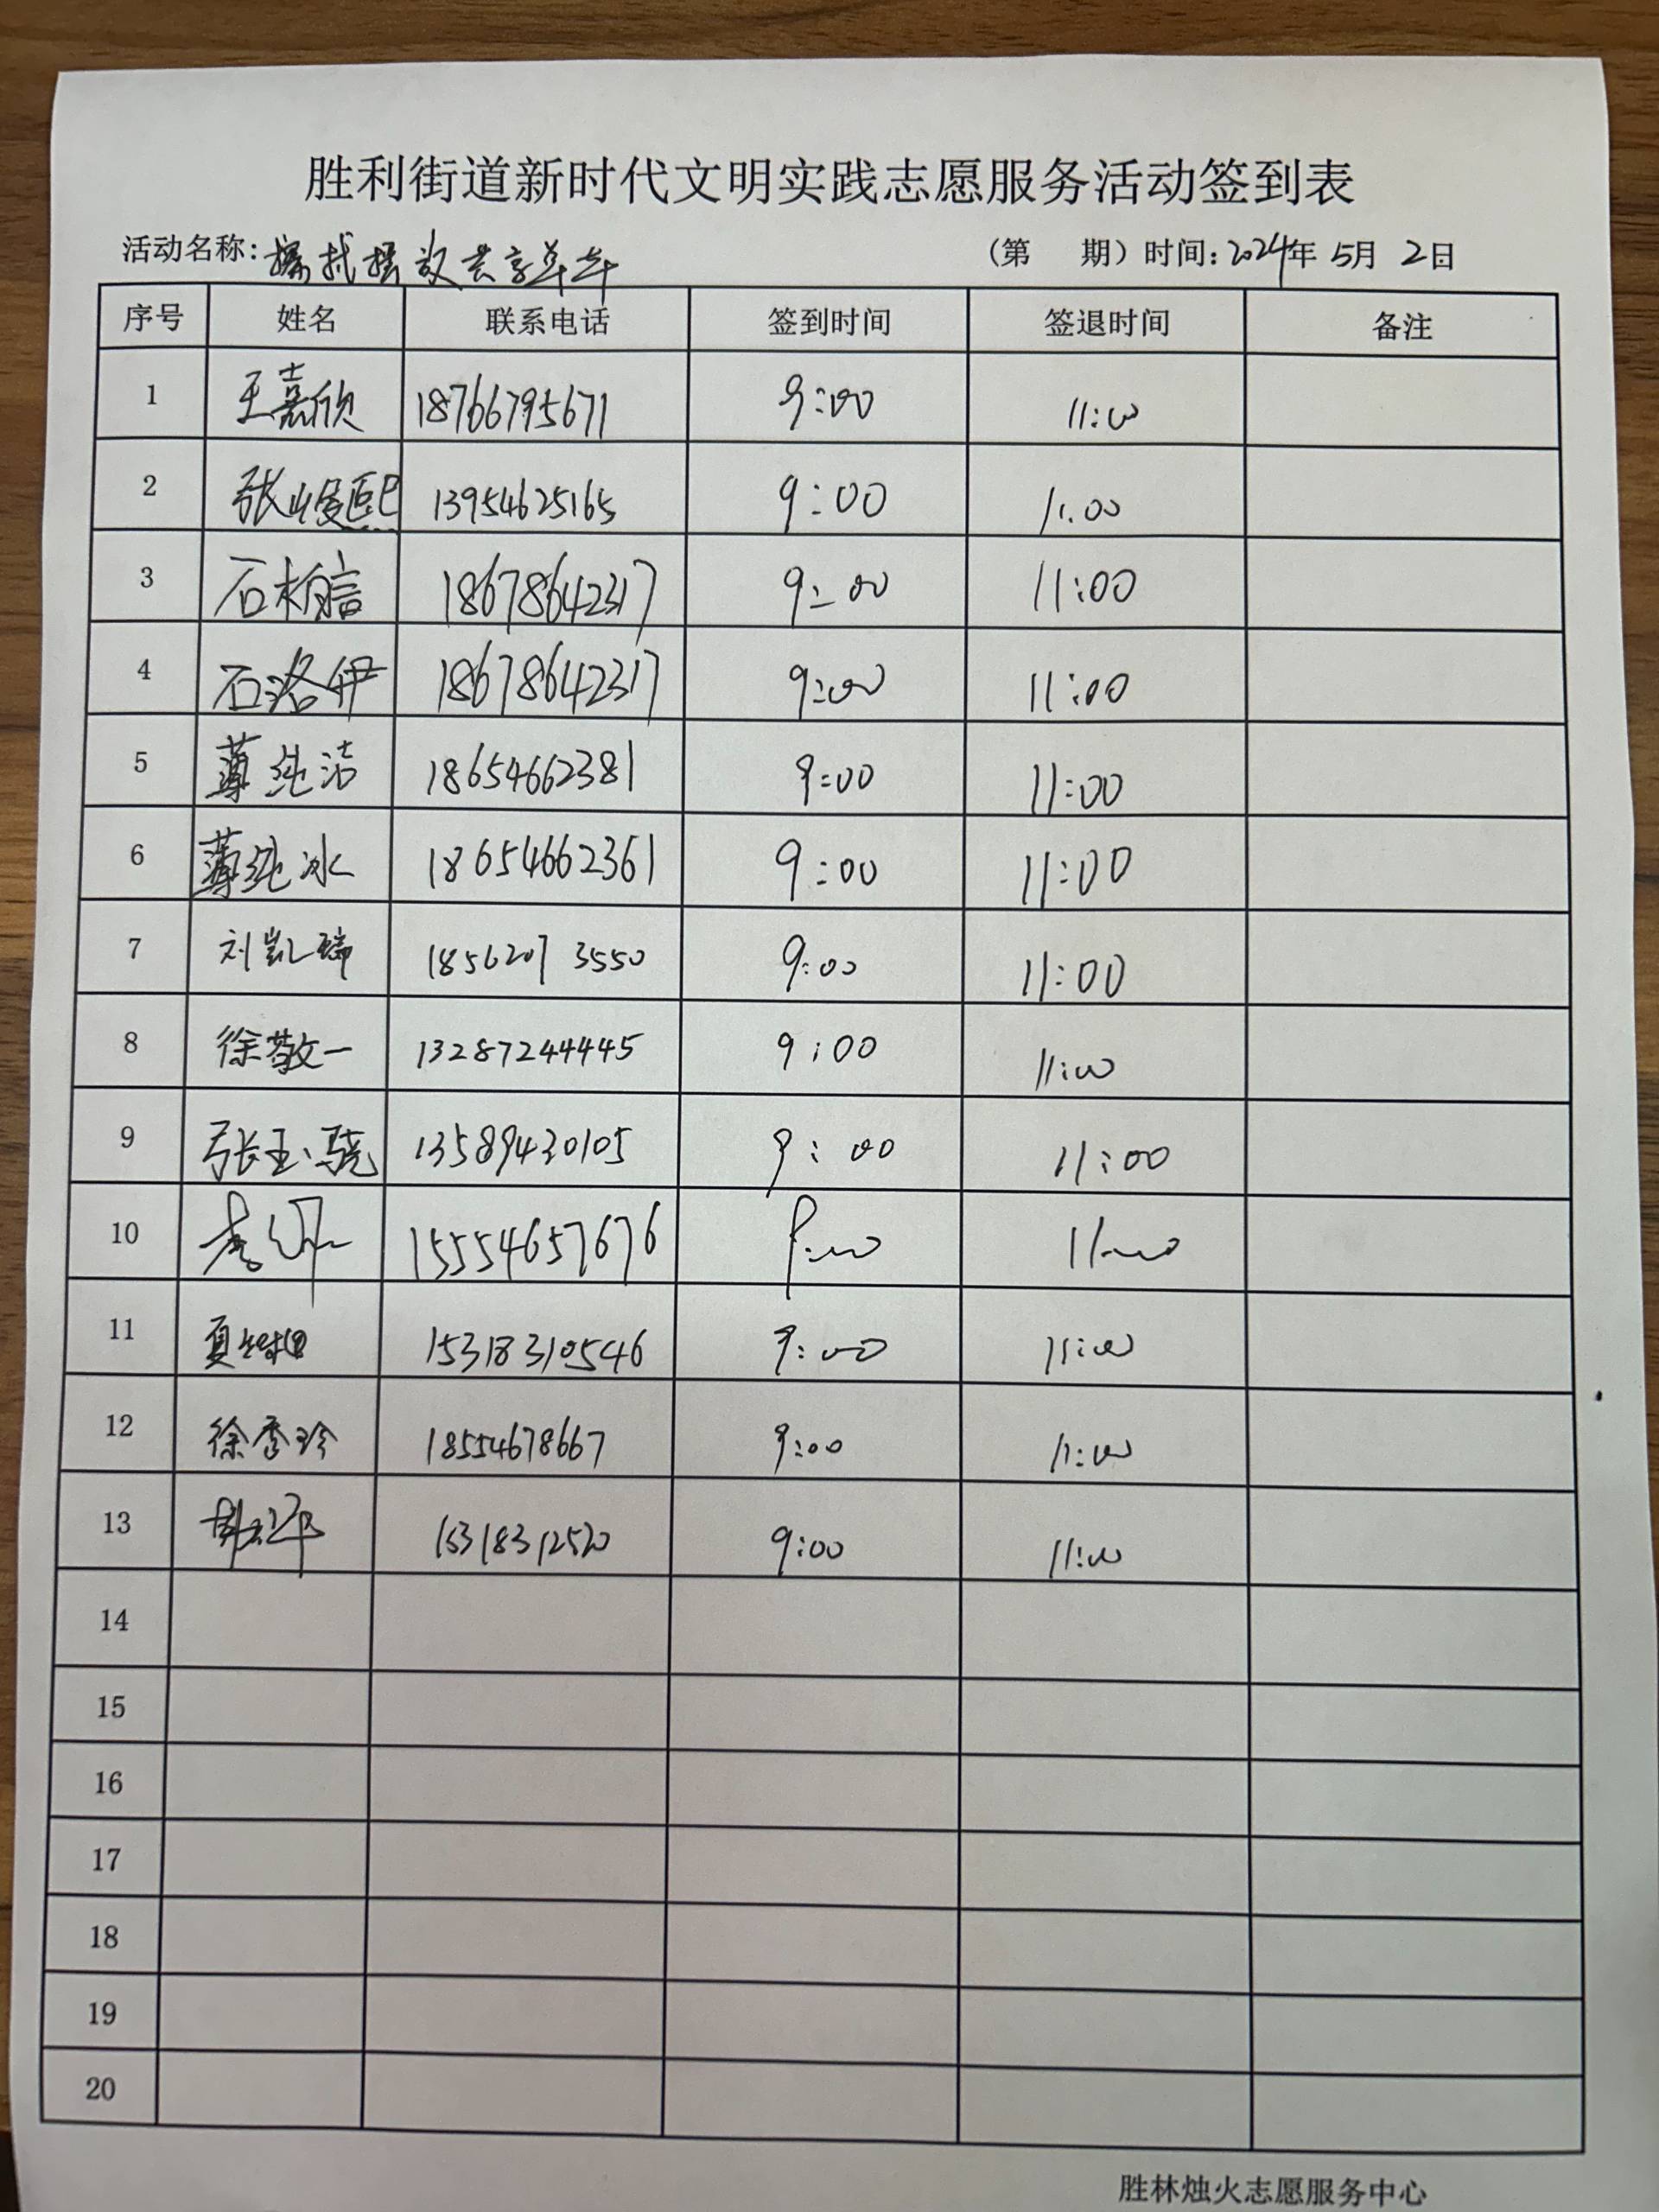 胜利街道新时代文明实践志愿服务活动签到表
活动名称: 摆放共享单车 (第 期) 时间: 2024年 5月 2日
序号 姓名 联系电话 签到时间 签退时间 备注
1 王嘉欣 18766795671 9:00 11:00
2 张峻熙 13954625165 9:00 11:00
3 石栯言 18678642317 9:00 11:00
4 石洛伊 18678642317 9:00 11:00
5 薄纯洁 18654662381 9:00 11:00
6 薄纯冰 18654662361 9:00 11:00
7 刘凯瑞 18562073550 9:00 11:00
8 徐敬一 13287244445 9:00 11:00
9 张玉骁 13589430105 9:00 11:00
10 15554657676 9:00 11:00
11 夏 15318310546 9:00 11:00
12 徐秀玲 18554678667 9:00 11:00
13 15318312520 9:00 11:00
14
15
16
17
18
19
20
胜林烛火志愿服务中心